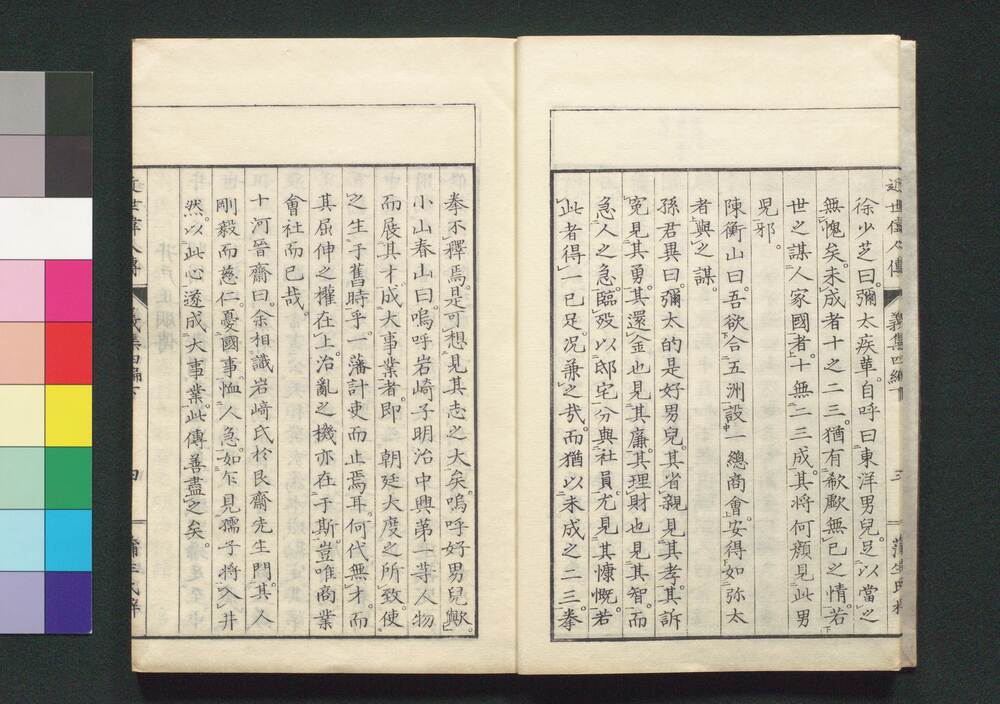 近世偉人傳
義集四編
徐少芝曰。彌太疾革。自呼曰東洋男兒。足以當之
無愧矣。未成者十之二三。猶有欷歔無已之情。若
世之謀人家國者。十無二三成。其將何顏見此男
児邪。
陳衡山曰。吾欲合五洲設一總商會。安得如弥太
者與之謀。
孫君異曰。彌太的是好男兒。其省親見其孝。其訴
冤見其勇。其還金也見其廉。其理財也見其智。而
急人之急。臨歿以邸宅分與社員。尤見其慷慨。若
此者得一已足。況兼之哉。而猶以未成之二三拳
拳不釋焉。是可想見其志之大矣。嗚呼好男兒歟。
小山春山曰。嗚呼岩崎子明治中興第一等人物
而展其才。成大事業者。即 朝廷大度之所致。使
之生于舊時乎。一藩計吏而止焉耳。何代無才。而
其屈伸之權在上。治亂之機亦在于斯。豈唯商業
會社而已哉。
十河晉齋曰。余相識岩﨑氏於艮齋先生門。其人
剛毅而慈仁。憂國事。恤人急。如乍見孺子將入井
然。以此心遂成大事業。此傳善盡之矣。
四